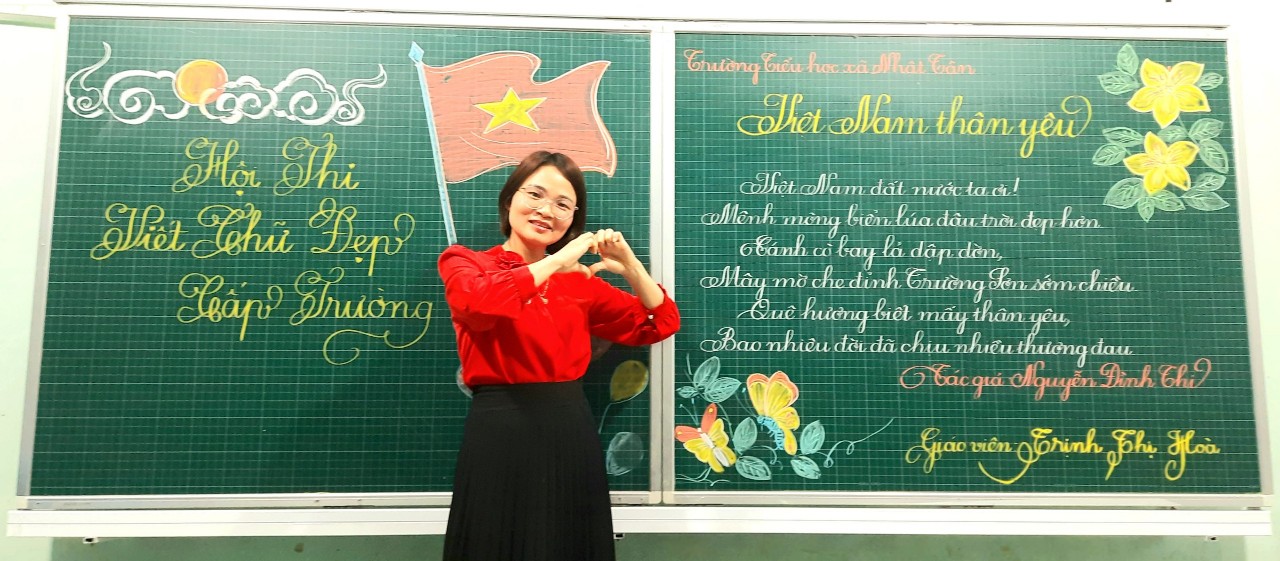 Hội Thi
Viết Chữ Đẹp
Cấp Trường
Trường Tiểu học xã Nhật Tân
Việt Nam thân yêu
Việt Nam đất nước ta ơi!
Mênh mông biển lúa đâu trời đẹp hơn
Cánh cò bay lả dập dờn,
Mây mờ che đỉnh Trường Sơn sớm chiều
Quê hương biết mấy thân yêu,
Bao nhiêu đời đã chịu nhiều thương đau
Tác giả Nguyễn Đình Thi
Giáo viên Trịnh Thị Hoà